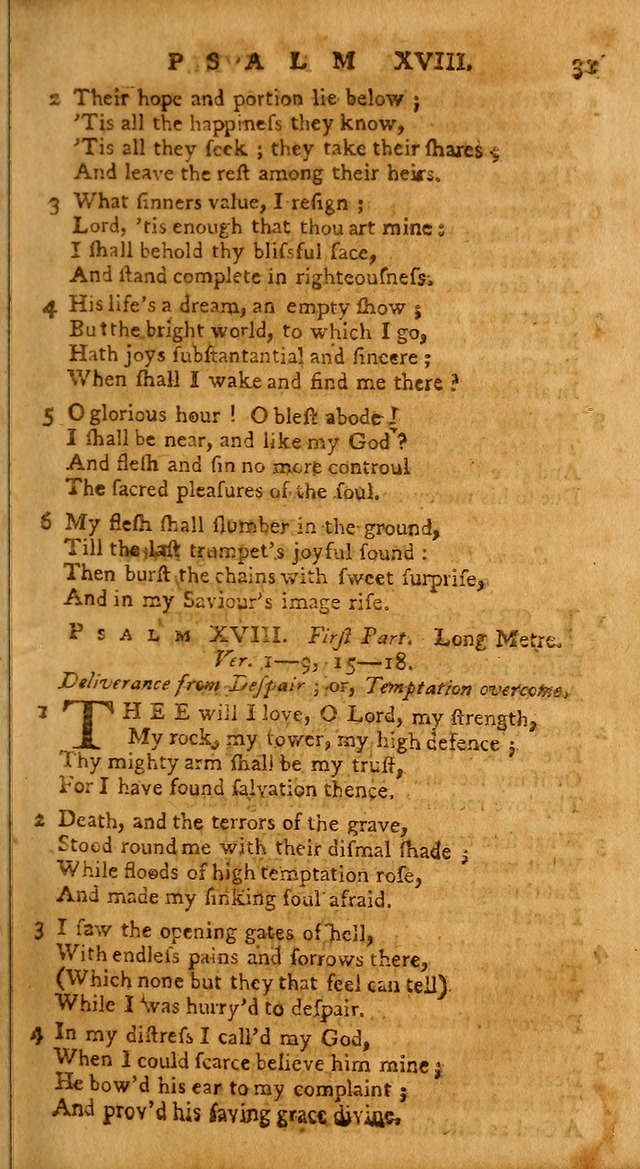 PSALM XVIII. 31
2 Their hope and portion lie below ;
'Tis all the happineſs they know,
'Tis all they ſeek ; they take their ſhares ;
And leave the reſt among their heirs.
3 What ſinners value, I reſign ;
Lord, 'tis enough that thou art mine :
I ſhall behold thy bliſsful face,
And ſtand complete in righteouſneſs.
4 His life's a dream, an empty ſhow ;
But the bright world, to which I go,
Hath joys ſubſtantantial and ſincere ;
When ſhall I wake and find me there ?
5 O glorious hour ! O bleſt abode !
I ſhall be near, and like my God ?
And fleſh and ſin no more controul
The ſacred pleaſures of the ſoul.
6 My fleſh ſhall ſlumber in the ground,
Till the laſt trumpet's joyful ſound :
Then burſt the chains with ſweet ſurpriſe,
And in my Saviour's image riſe.
PSALM XVIII. Firſt Part. Long Metre.
Ver. 1—9, 15—18.
Deliverance from Deſpair ; or, Temptation overcome.
1 THEE will I love, O Lord, my ſtrength,
My rock, my tower, my high defence ;
Thy mighty arm ſhall be my truſt,
For I have found ſalvation thence.
2 Death, and the terrors of the grave,
Stood round me with their diſmal ſhade ;
While floods of high temptation roſe,
And made my ſinking ſoul afraid.
3 I ſaw the opening gates of hell,
With endleſs pains and ſorrows there,
(Which none but they that feel can tell)
While I was hurry'd to deſpair.
4 In my diſtreſs I call'd my God,
When I could ſcarce believe him mine ;
He bow'd his ear to my complaint ;
And prov'd his ſaving grace divine.